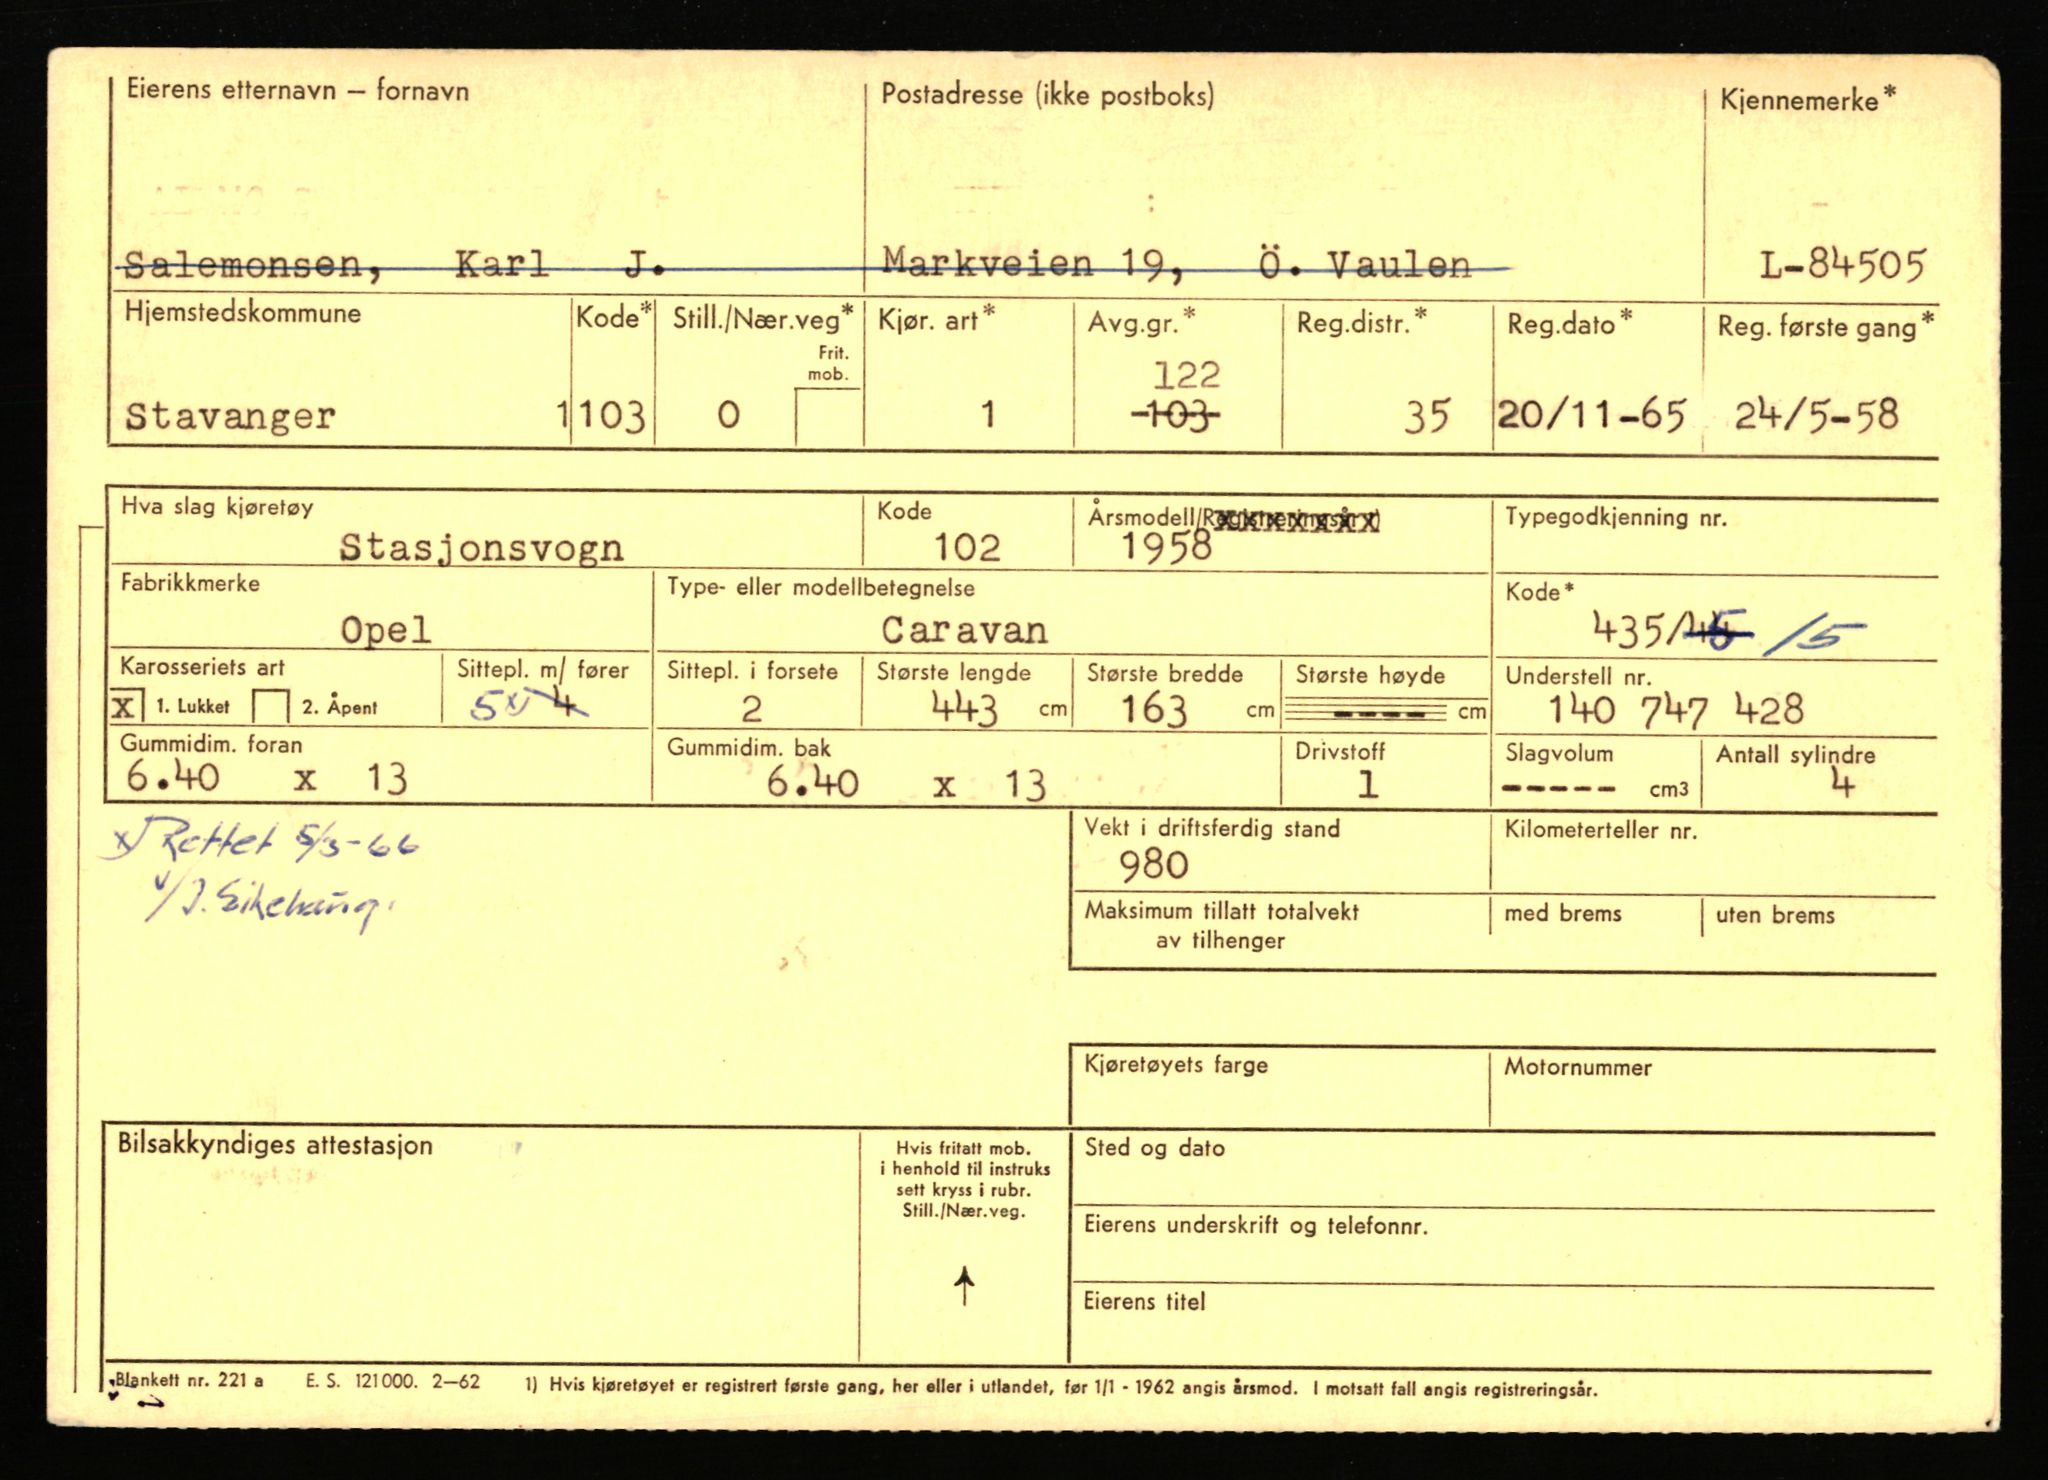 Eierens etternavn – fornavn Postadresse (ikke postboks) Kjennemerke*
Salemonsen, Karl J. Markveien 19, Ö. Vaulen L-84505
Hjemstedskommune Kode* Still./Nær.veg* Kjør. art* Avg.gr.* Reg.distr.* Reg.dato* Reg. første gang*
Frit.
mob.
122
Stavanger 1103 0 1 103 35 20/11-65 24/5-58
Hva slag kjøretøy Kode Årsmodell/Registreringsår 1) Typegodkjenning nr.
Stasjonsvogn 102 1958
Fabrikkmerke Type- eller modellbetegnelse Kode*
Opel Caravan 435/ /5
Karosseriets art Sittepl. m/ fører Sittepl. i forsete Største lengde Største bredde Største høyde Understell nr.
X 1. Lukket 2. Åpent 5 x) 4 2 443 cm 163 cm ---- cm 140 747 428
Gummidim. foran Gummidim. bak Drivstoff Slagvolum Antall sylindre
6.40 x 13 6.40 x 13 1 ----- cm3 4
x) Rettet 5/3-66
v/J.
Vekt i driftsferdig stand Kilometerteller nr.
980
Maksimum tillatt totalvekt med brems uten brems
av tilhenger
Kjøretøyets farge Motornummer
Bilsakkyndiges attestasjon
Hvis fritatt mob.
i henhold til instruks
sett kryss i rubr.
Still./Nær.veg.
Sted og dato
Eierens underskrift og telefonnr.
Eierens titel
Blankett nr. 221 a E. S. 121000. 2–62 1) Hvis kjøretøyet er registrert første gang, her eller i utlandet, før 1/1 - 1962 angis årsmod. I motsatt fall angis registreringsår.